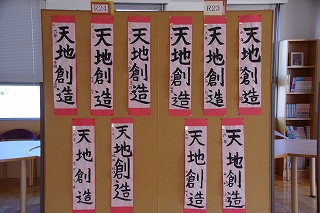 R24
R23
天地創造
天地創造
天地創造
天地創造
天地創造
天地創造
天地創造
天地創造
天地創造
天地創造